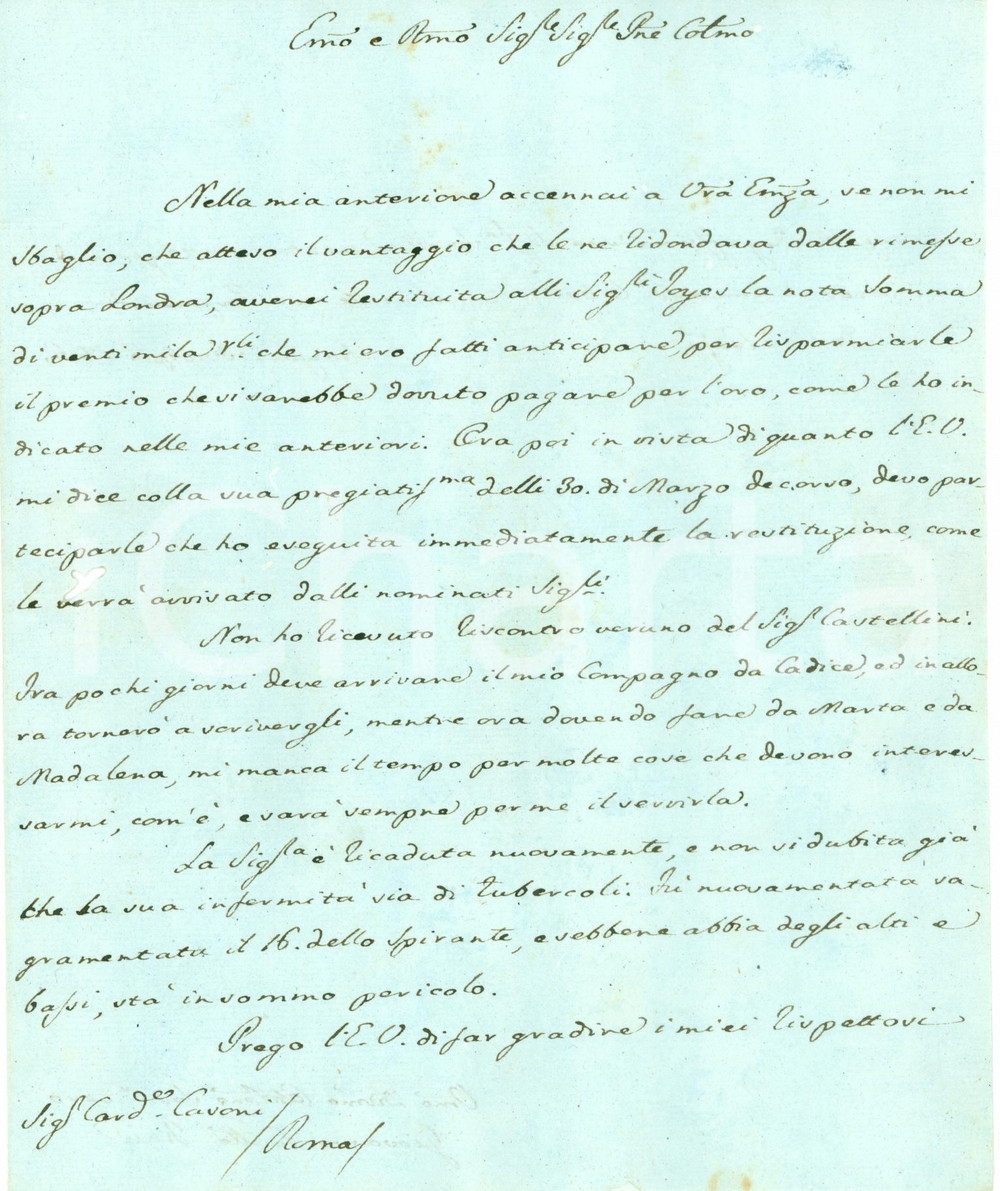 Emo e Rmo Sigle Sigle Pne Colmo
Nella mia anteriore accennai a Vra Emza, se non mi
sbaglio, che atteso il vantaggio che le ne ridondava dalle rimesse
sopra Londra, averei restituita alli Sigli Joyes la nota somma
di venti mila rli che mi ero fatti anticipare, per risparmiarle
il premio che vi sarebbe dovuto pagare per l'oro, come le ho in-
dicato nelle mie anteriori. Ora poi in vista di quanto l'E.V.
mi dice colla sua pregiatisma delli 30. di Marzo decorso, devo par-
teciparle che ho eseguita immediatamente la restituzione, come
le verrà avvisato dalli nominati Sigli.
Non ho ricevuto riscontro veruno del Sigr Castellini.
Fra pochi giorni deve arrivare il mio Compagno da Cadice, ed in allo-
ra tornerò a scrivergli, mentre ora dovendo fare da Marta e da
Madalena, mi manca il tempo per molte cose che devono interes-
sarmi, com'è, e sarà sempre per me il servirla.
La Sigra è ricaduta nuovamente, e non si dubita già
che la sua infermità sia di tubercoli. Fù nuovamentata sa-
gramentata il 16. dello spirante, e sebbene abbia degli alti e
bassi, stà in sommo pericolo.
Prego l'E.V. di far gradire i miei rispettosi
Sigr Carde Cavoni /
/ Roma /
iCharta